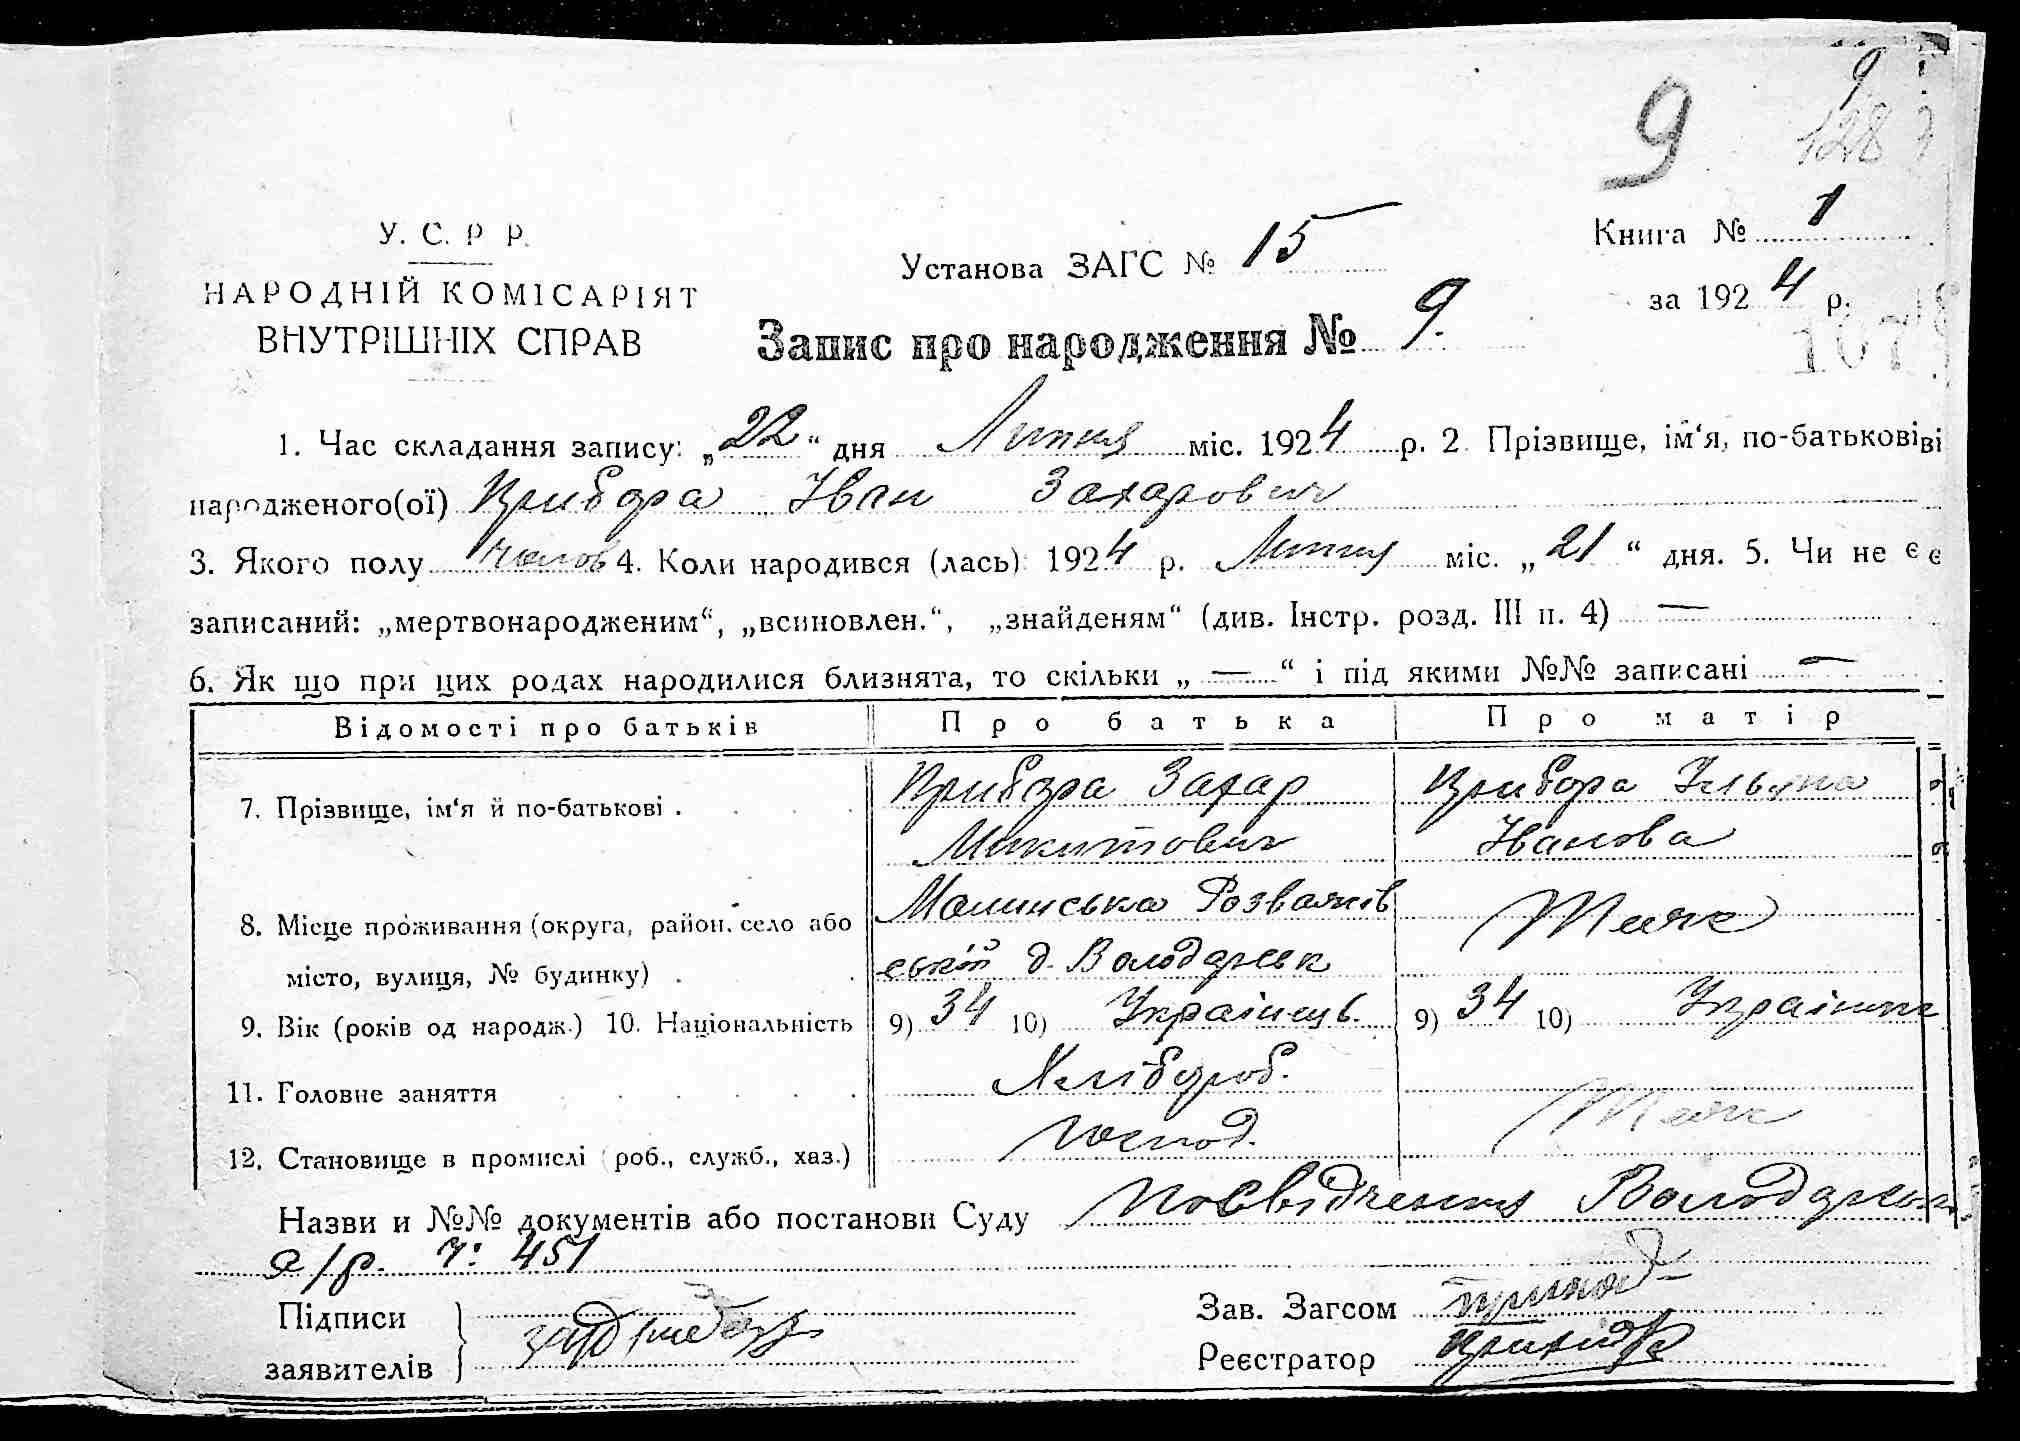 9
9
128
У. С. Р Р.
Установа ЗАГС № 15
Книга № 1
НАРОДНІЙ КОМІСАРІЯТ
за 1924 р.
ВНУТРІШНІХ СПРАВ
Запис про народження № 9.
107
1. Час складання запису: „22“ дня Липня міс. 1924 р. 2. Прізвище, ім‘я, по-батькові
народженого(ої) Прибора Іван Захарович
3. Якого полу чолов 4. Коли народився (лась) 1924 р. Липня міс. „21“ дня. 5. Чи не є
записаний: „мертвонародженим“, „всиновлен.“, „знайденям“ (див. Інстр. розд. III п. 4) —
6. Як що при цих родах народилися близнята, то скільки „ — “ і під якими №№ записані —
Відомості про батьків Про батька Про матір
7. Прізвище, ім‘я й по-батькові . Прибора Захар Прибора Ульяна
Микитович Іванова
8. Місце проживання (округа, район, село або Малинська Розважів Теж
місто, вулиця, № будинку) . ській д. Володарськ
9. Вік (років од народж.) 10. Національність 9) 34 10) Українець. 9) 34 10) Українка
11. Головне заняття Хлібороб.
12. Становище в промислі (роб., служб., хаз.) Господ. Теж
Назви и №№ документів або постанови Суду Посвідчення Володарськ
с/р. ч: 451
Підписи
заявителів
Зав. Загсом
Реєстратор